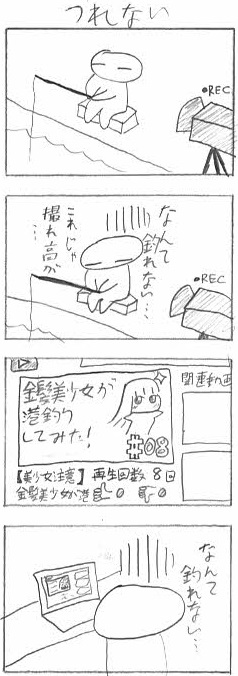 つれない
●REC
なんて
釣れない…
これじゃ
撮れ高が
●REC
金髪美少女が
港釣り
してみた!
#08
関連動画
【美少女注意】再生回数 8回
金髪美少女が港 0 0
なんて
釣れない…